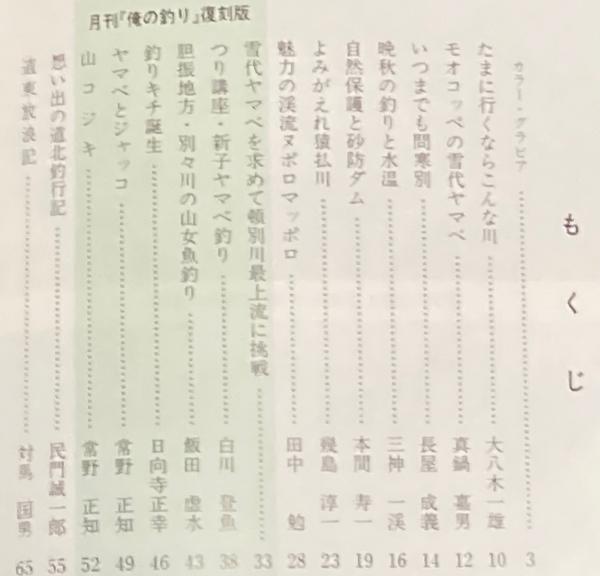 もくじ
カラー・グラビア 3
たまに行くならこんな川 大八木一雄 10
モオコッペの雪代ヤマベ 真鍋嘉男 12
いつまでも問寒別 長屋成義 14
晩秋の釣りと水温 三神一渓 16
自然保護と砂防ダム 本間寿一 19
よみがえれ猿払川 幾島淳一 23
魅力の渓流ヌポロマッポロ 田中勉 28
月刊『俺の釣り』復刻版
雪代ヤマベを求めて頓別川最上流に挑戦 33
つり講座・新子ヤマベ釣り 白川登魚 38
胆振地方・別々川の山女魚釣り 飯田虚水 43
釣りキチ誕生 日向寺正幸 46
ヤマベとジャッコ 常野正知 49
山コジキ 常野正知 52
思い出の道北釣行記 民門誠一郎 55
道東放浪記 対馬国男 65